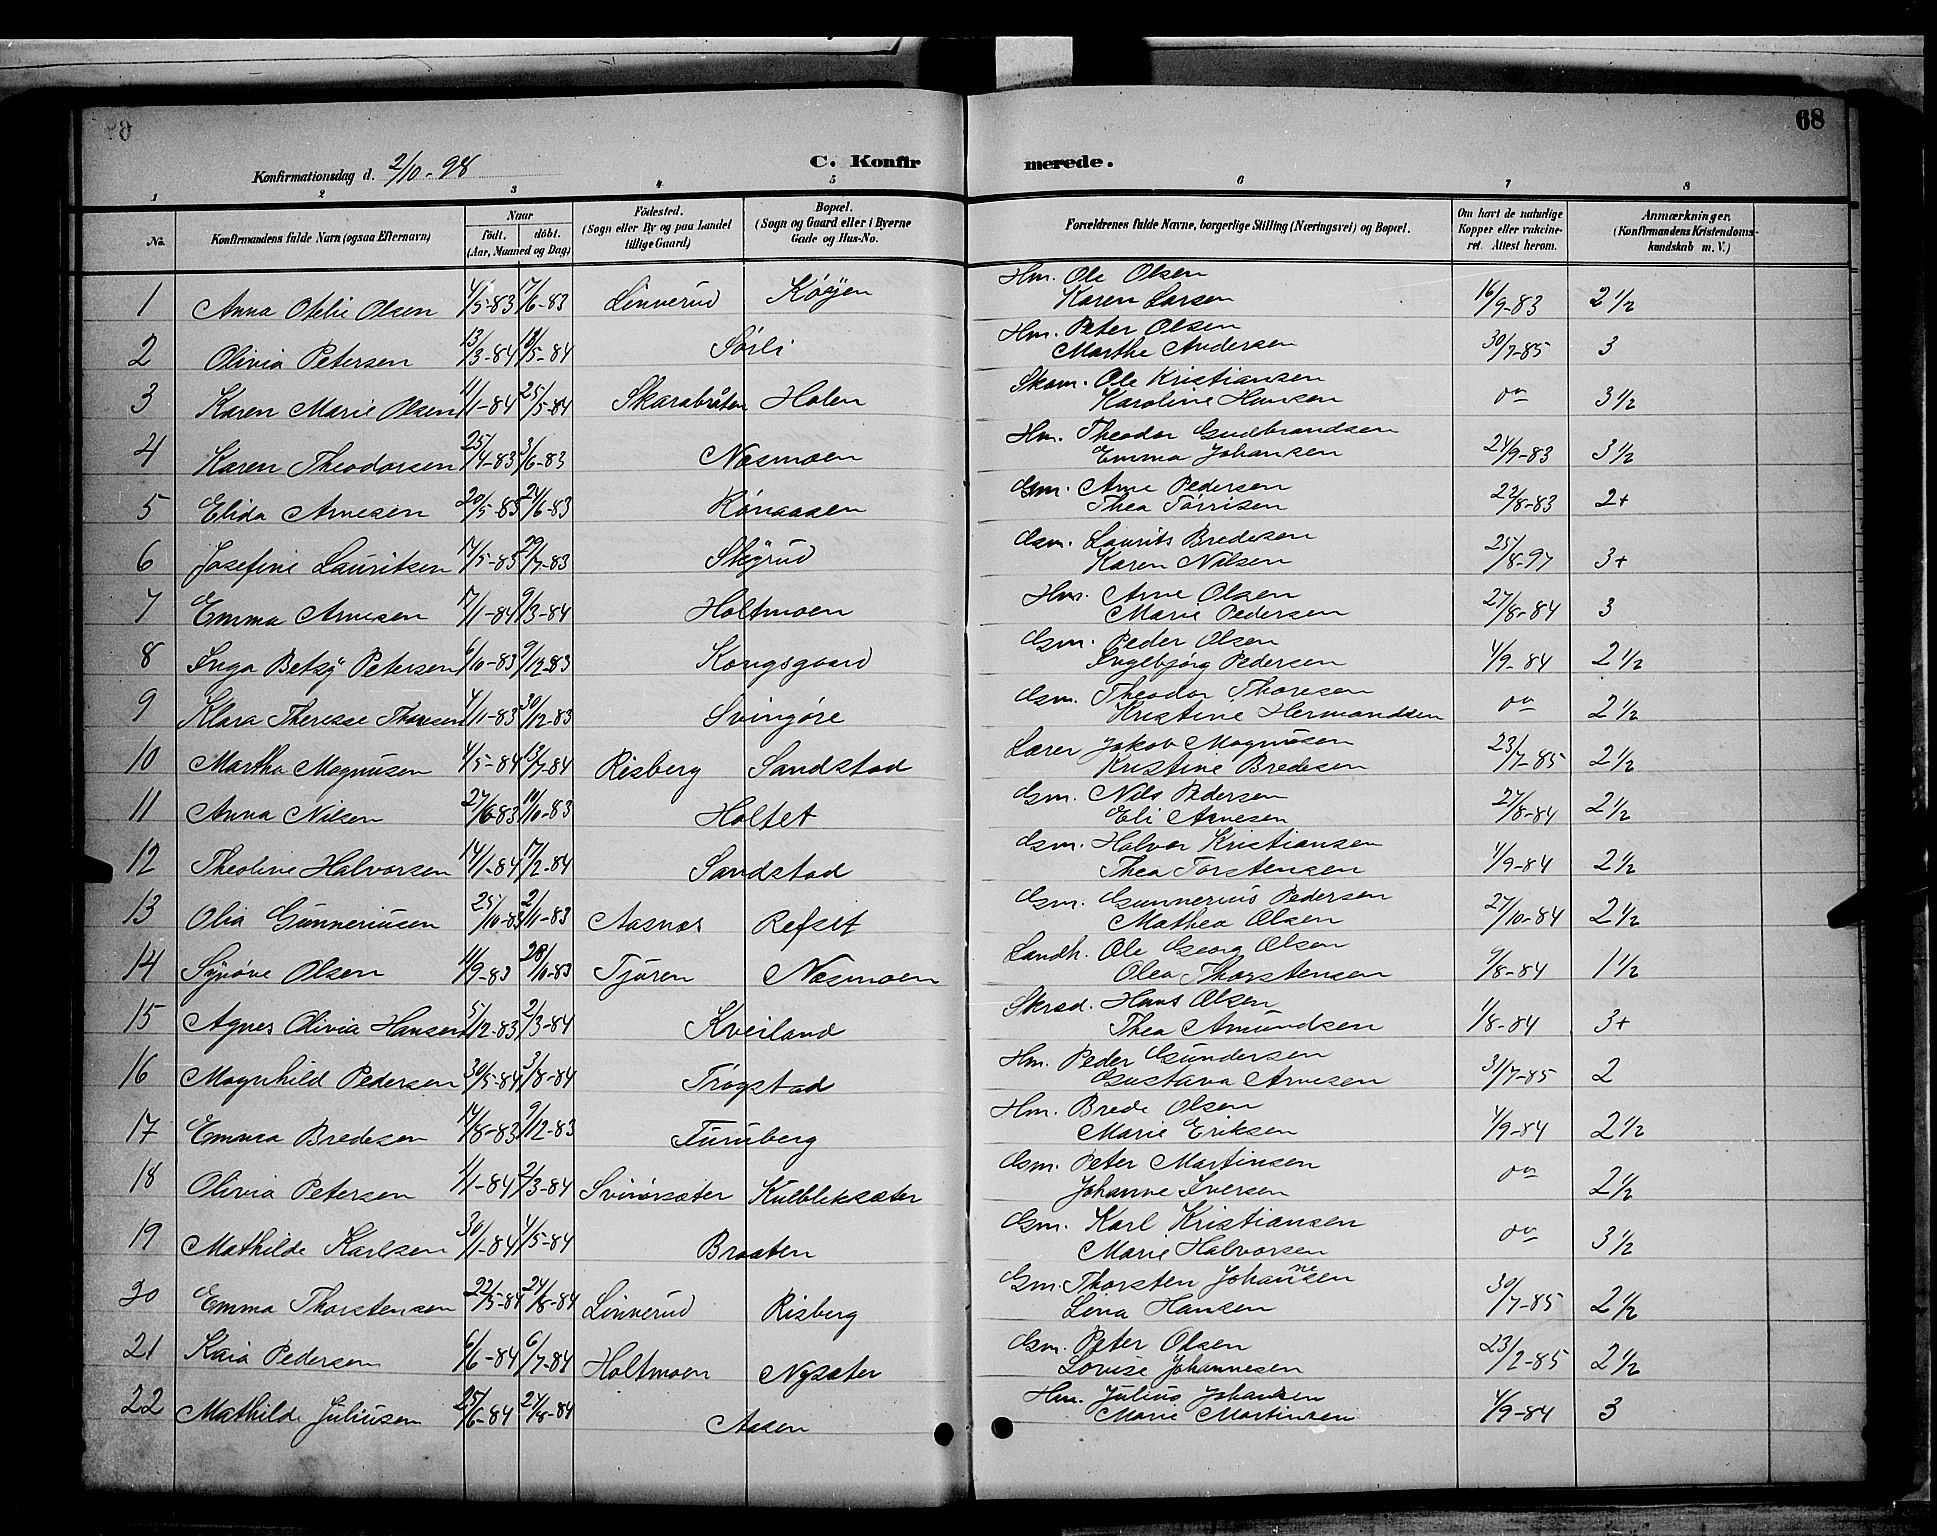 68
Konfirmationsdag d. 2/10-98
C. Konfirmerede.
1 2 3 4 5 6 7 8
No. Konfirmandens fulde Navn (ogsaa Efternavn) Naar födt. döbt. (Aar, Maaned og Dag) Födested. (Sogn eller By og paa Landet tillige Gaard) Bopæl. (Sogn og Gaard eller i Byerne Gade og Hus-No. Forældrenes fulde Navne, borgerlige Stilling (Næringsvei) og Bopæl. Om havt de naturlige Kopper eller vakcineret. Attest herom. Anmærkninger. (Konfirmandens Kristendomskundskab m. V.)
1 Anna Otelie Olsen 4/5-83 7/6-83 Linnerud Hm. Ole Olsen Karen Larsen 16/9-83 2 1/2
2 Olivia Petersen 13/3-84 18/5-84 Sørli Hm. Peter Olsen Marthe Andersen 30/7-85 3
3 Karen Marie Olsen 11/1-84 25/5-84 Skarabråten Holen Skom. Ole Kristiansen Karoline Hansen 3 1/2
4 Karen Theodorsen 25/4-83 3/6-83 Næsmoen Hm. Theodor Gudbrandsen Emma Johansen 24/9-83 3 1/2
5 Elida Arnesen 20/5-83 24/6-83 Rønaasen Gm. Arne Pedersen Thea Tørrisen 22/8-83 2+
6 Josefine Lauritsen 17/5-83 29/7-83 Skyrud Gsm. Laurits Bredesen Karen Nilsen 25/8-97 3+
7 Emma Arnesen 17/1-84 9/3-84 Holtmoen Hm. Arne Olsen Marie Pedersen 27/8-84 3
8 Inga Betzy Petersen 6/10-83 9/12-83 Kongsgaard Gsm. Peder Olsen Ingebjørg Pedersen 4/9-84 2 1/2
9 Klara Therese Thoresen 4/11-83 30/12-83 Svingøre Gsm. Theodor Thoresen Kristine Hermandsen 2 1/2
10 Martha Magnusen 4/5-84 13/7-84 Risberg Sandstad Lærer Jakob Magnusen Kristine Bredesen 23/7-85 2 1/2
11 Anna Nilsen 27/6-83 14/10-83 Holtet Gm. Nils Pedersen Eli Arnesen 27/8-84 2 1/2
12 Theoline Halvorsen 14/1-84 17/2-84 Sandstad Gsm. Halvor Kristiansen Thea Torstensen 4/9-84 2 1/2
13 Olia Gunneriusen 25/10-83 2/11-83 Aasnæs Refset Gsm. Gunnerius Pedersen Mathea Olsen 27/10-84 2 1/2
14 Synøve Olsen 11/9-83 28/10-83 Tjuren Næsmoen Landh. Ole Georg Olsen Olea Thorstensen 9/8-84 1 1/2
15 Agnes Olivia Hansen 5/12-83 2/3-84 Kveiland Skræd. Hans Olsen Thea Amundsen 1/8-84 3+
16 Magnhild Pedersen 30/5-84 3/8-84 Trøgstad Hm. Peder Gundersen Gustava Arnesen 31/7-85 2
17 Emma Bredesen 17/8-83 9/12-83 Furuberg Hm. Brede Olsen Marie Eriksen 4/9-84 2 1/2
18 Olivia Petersen 1/1-84 2/3-84 Kulbliksæter Gsm. Peter Martinsen Johanne Iversen 2 1/2
19 Mathilde Karlsen 30/1-84 4/5-84 Braaten Gsm. Karl Kristiansen Marie Halvorsen 3 1/2
20 Emma Thorstensen 22/5-84 24/8-84 Linnerud Risberg Gm. Thorsten Johannesen Lina Hansen 30/7-85 2 1/2
21 Kaia Pedersen 6/6-84 6/7-84 Holtmoen Nysæter Gsm. Peter Olsen Lovise Johannesen 23/2-85 2 1/2
22 Mathilde Juliusen 25/6-84 24/8-84 Aasen Hm. Julius Johansen Marie Martinsen 4/9-84 3